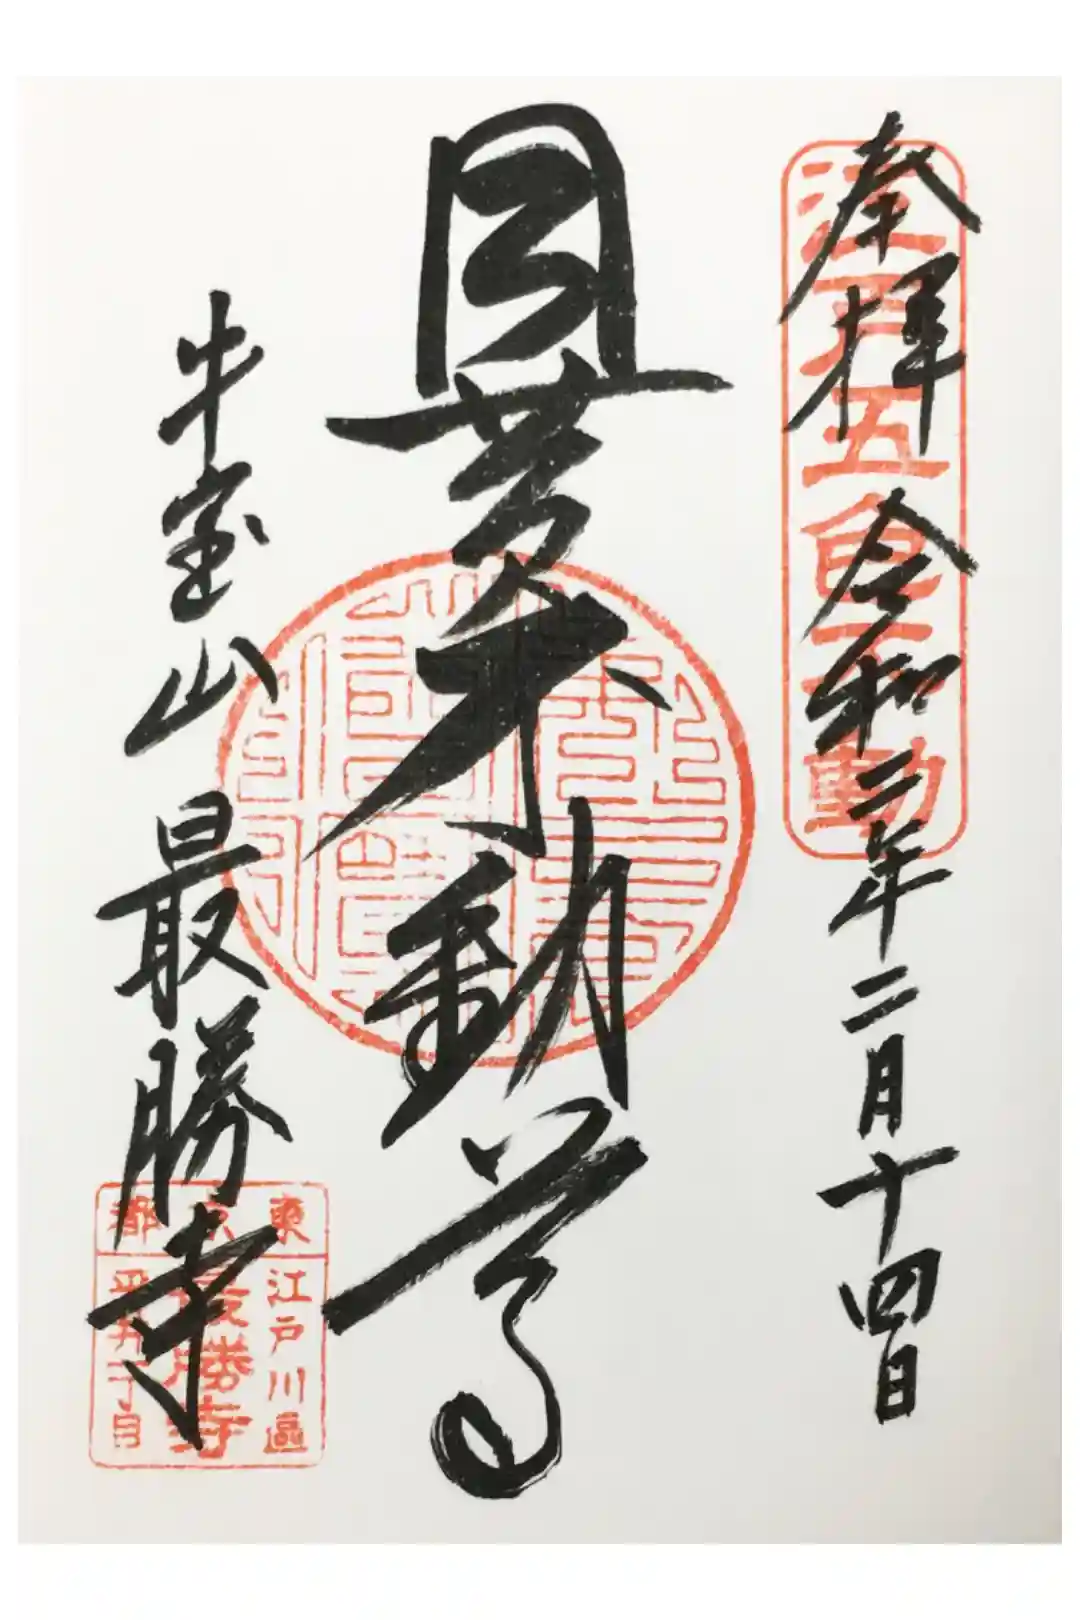 奉拝 令和二年二月十四日
江戸五色不動
目黄不動尊
牛宝山
最勝寺
東京都
江戸川區
最勝寺
平井一丁目